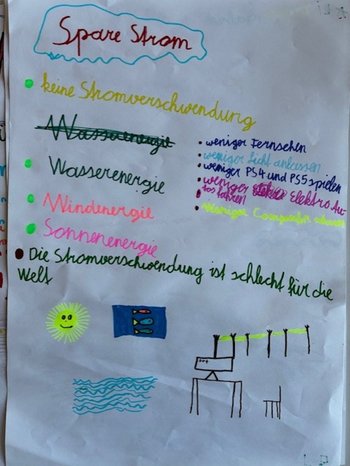 Spare Strom
keine Stromverschwendung
Wasserenergie
Wasserenergie
Windenergie
Sonnenenergie
weniger Fernsehen
weniger Licht anlassen
weniger PS4 und PS5 spielen
weniger Elektro Au-
tos fahren
weniger Computer
Die Stromverschwendung ist schlecht für die
Welt